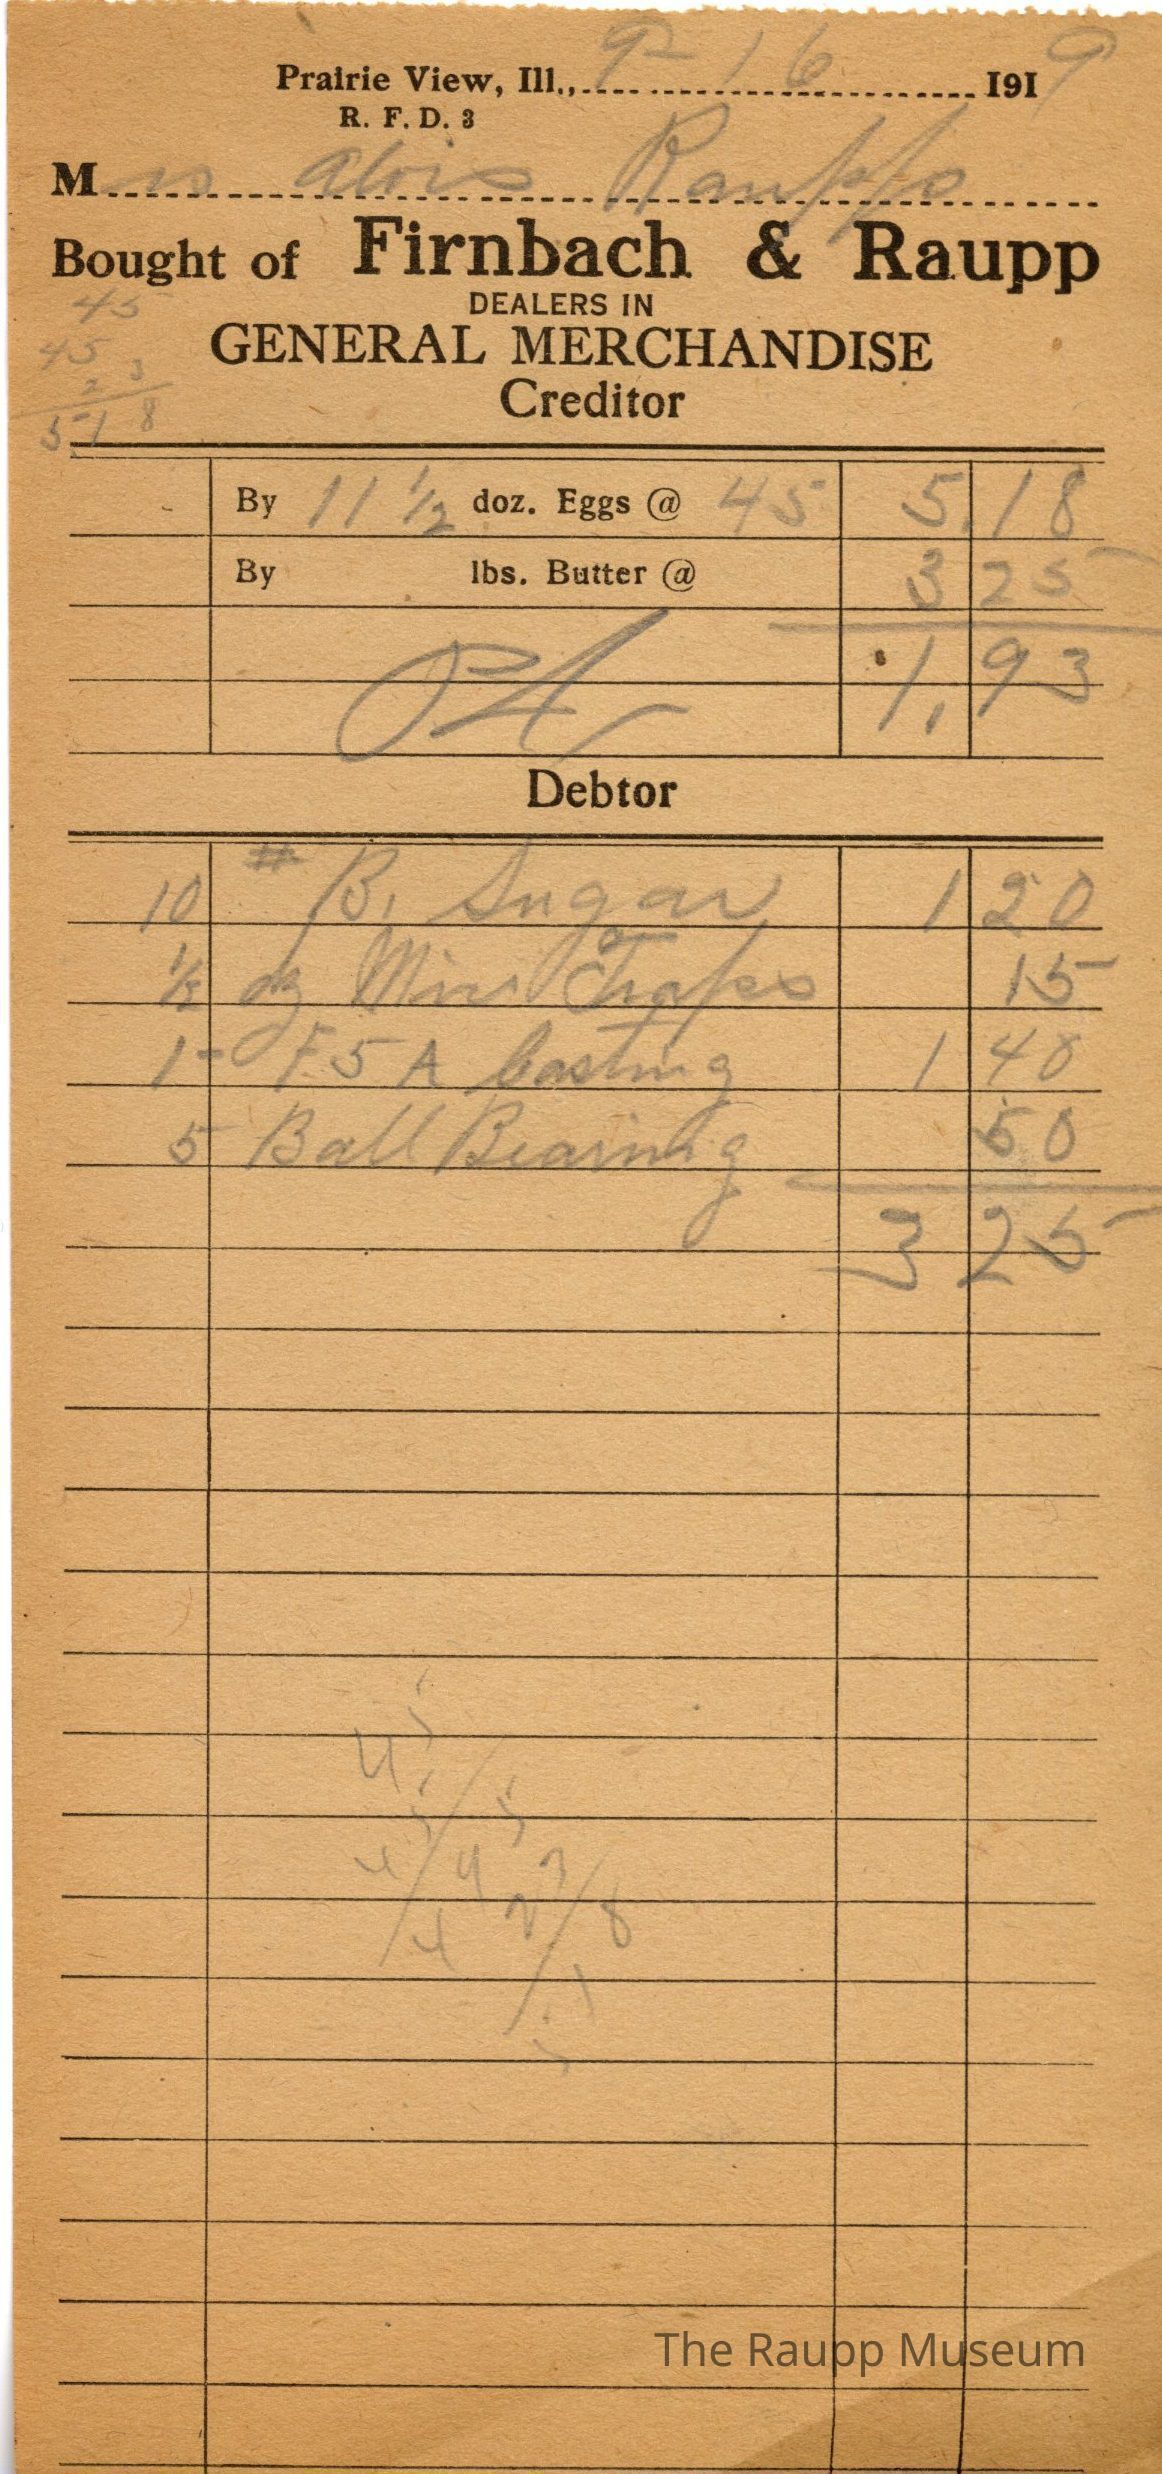 Prairie View, Ill., 9-16 1919
R. F. D. 3
Mrs Alois Raupp
Bought of Firnbach & Raupp
DEALERS IN
GENERAL MERCHANDISE
Creditor
45
45
23
518
By 11 1/2 doz. Eggs @ 45 5.18
By lbs. Butter @ 3 25
1.93
Debtor
10 # B. Sugar 1 20
1/2 dz Mice Traps 15
1- F5A Casting 1 40
5 Ball Bearing 50
3 25
The Raupp Museum